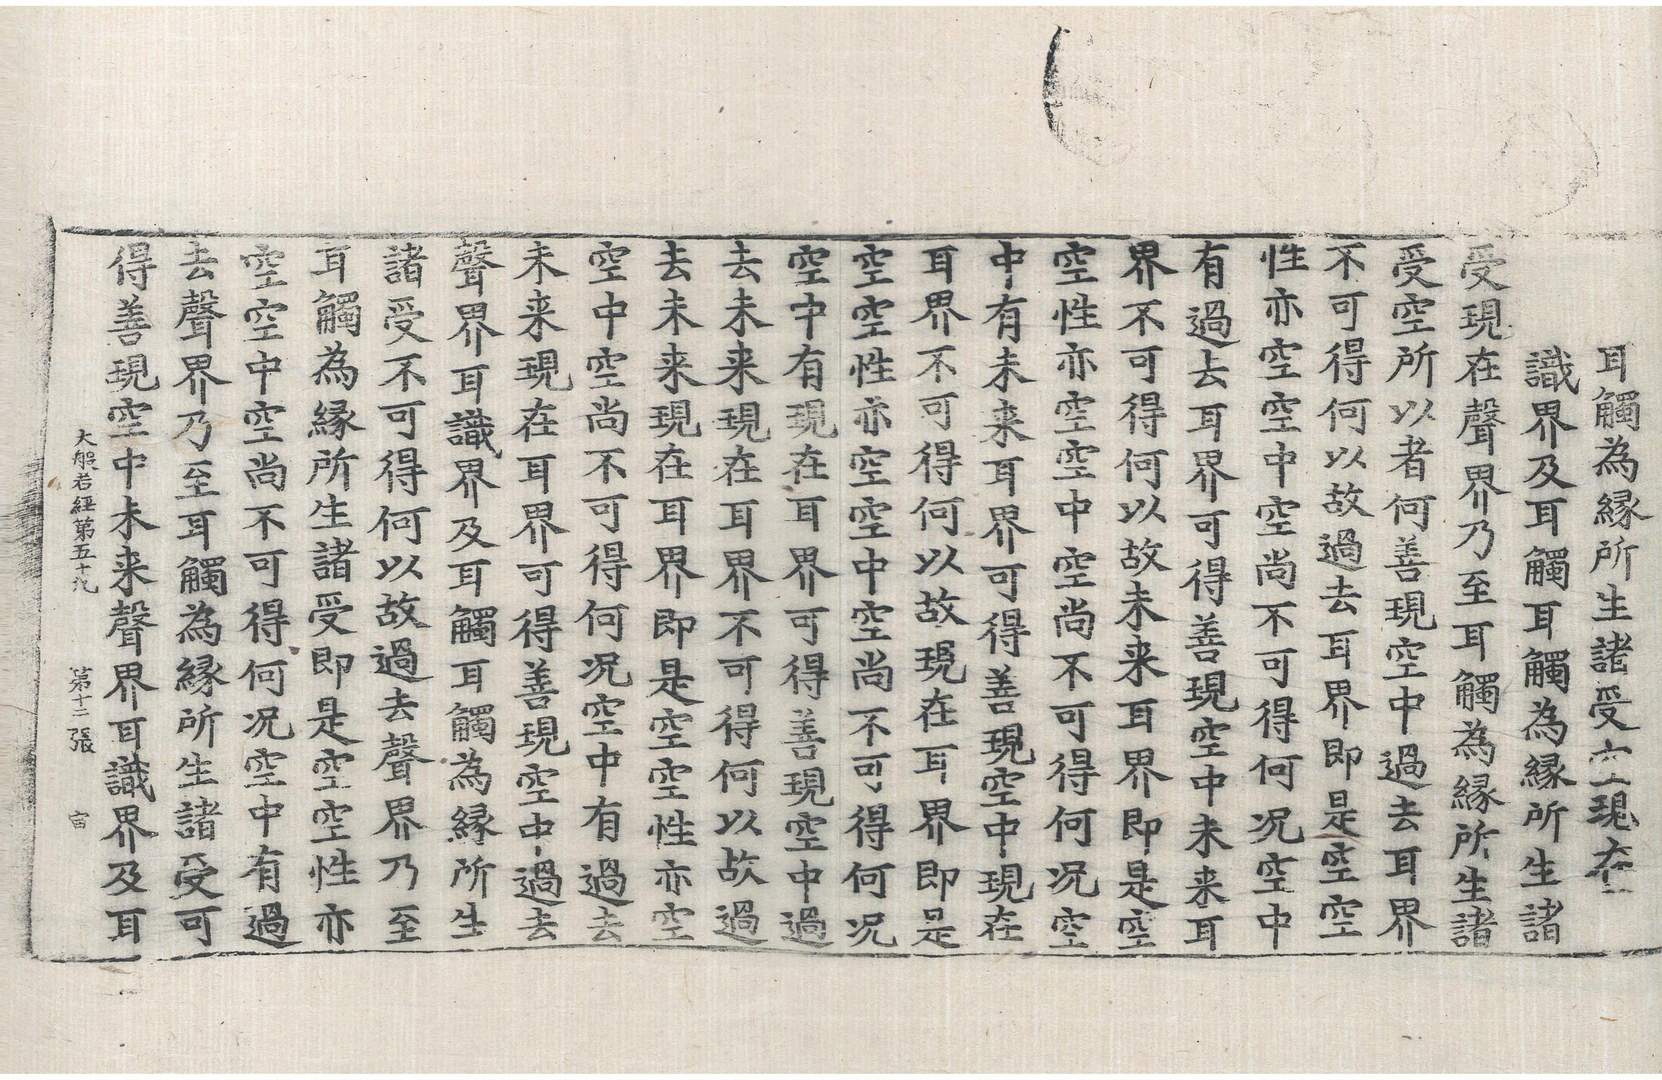 耳觸為縁所生諸受空現在
識界及耳觸耳觸為縁所生諸
受現在聲界乃至耳觸為縁所生諸
受空所以者何善現空中過去耳界
不可得何以故過去耳界即是空空
性亦空空中空尚不可得何况空中
有過去耳界可得善現空中未来耳
界不可得何以故未来耳界即是空
空性亦空空中空尚不可得何况空
中有未来耳界可得善現空中現在
耳界不可得何以故現在耳界即是
空空性亦空空中空尚不可得何况
空中有現在耳界可得善現空中過
去未来現在耳界不可得何以故過
去未来現在耳界即是空空性亦空
空中空尚不可得何况空中有過去
未来現在耳界可得善現空中過去
聲界耳識界及耳觸耳觸為縁所生
諸受不可得何以故過去聲界乃至
耳觸為縁所生諸受即是空空性亦
空空中空尚不可得何况空中有過
去聲界乃至耳觸為縁所生諸受可
得善現空中未来聲界耳識界及耳
大般若經第五十九 第十二張 宙